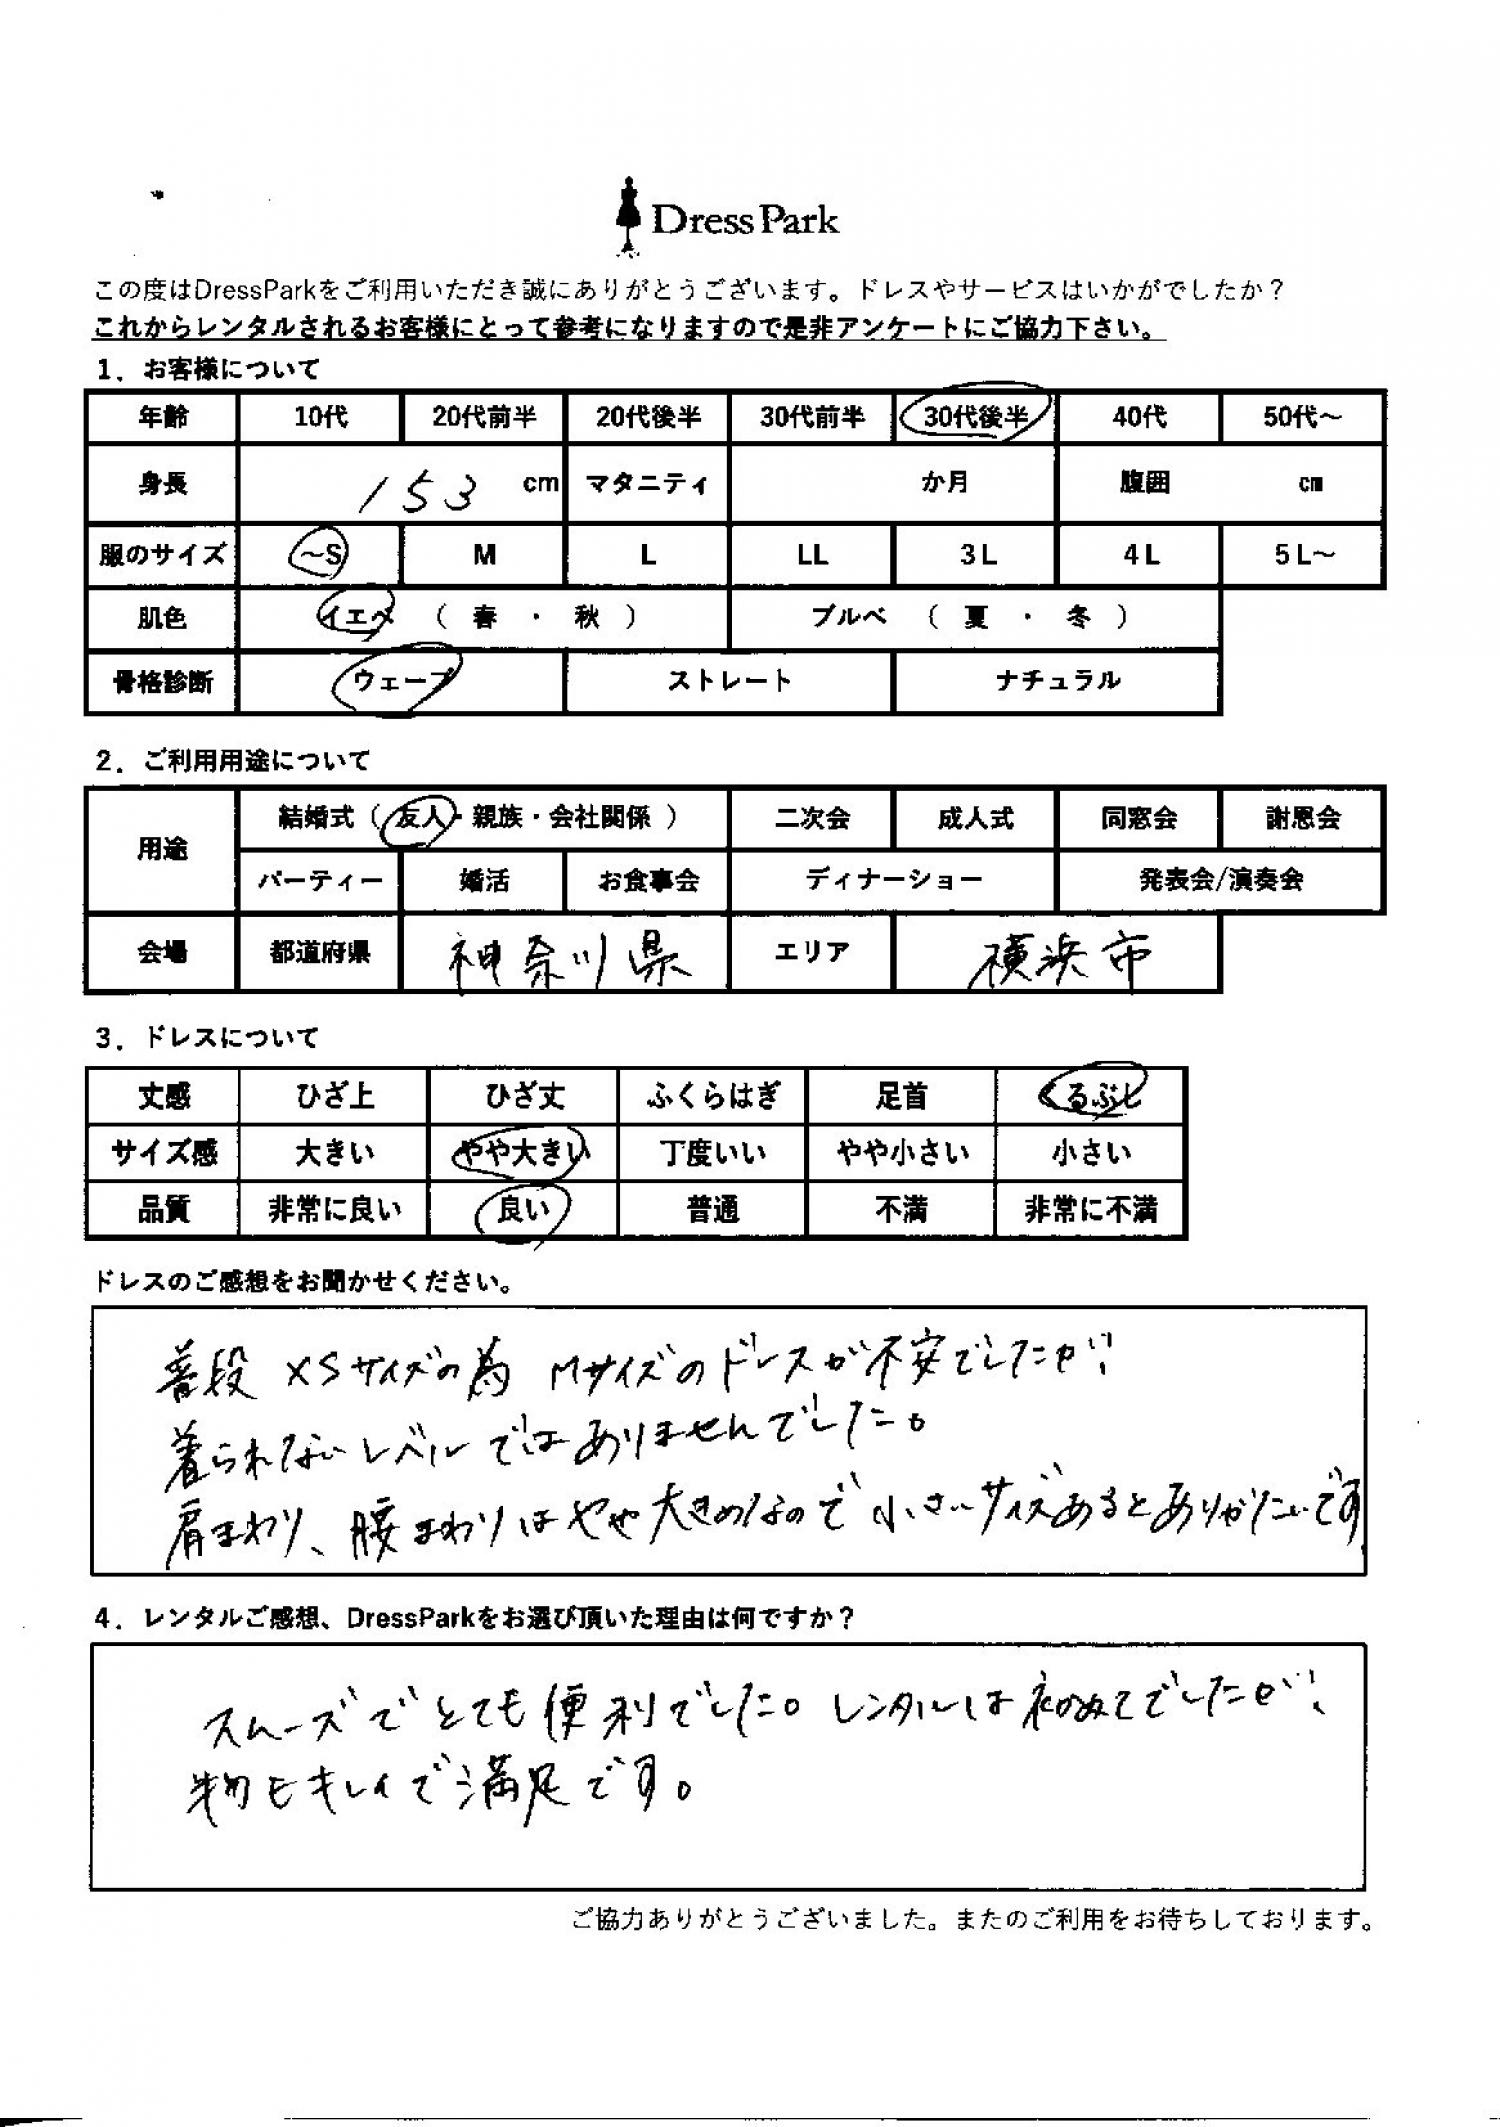 Dress Park
この度はDressParkをご利用いただき誠にありがとうございます。ドレスやサービスはいかがでしたか？
これからレンタルされるお客様にとって参考になりますので是非アンケートにご協力下さい。
1．お客様について
年齢 10代 20代前半 20代後半 30代前半 30代後半 40代 50代～
身長 153 cm マタニティ か月 腹囲 cm
服のサイズ ～S M L LL 3L 4L 5L～
肌色 イエベ （ 春 ・ 秋 ） ブルベ （ 夏 ・ 冬 ）
骨格診断 ウェーブ ストレート ナチュラル
2．ご利用用途について
用途 結婚式（ 友人・親族・会社関係 ） 二次会 成人式 同窓会 謝恩会
パーティー 婚活 お食事会 ディナーショー 発表会/演奏会
会場 都道府県 神奈川県 エリア 横浜市
3．ドレスについて
丈感 ひざ上 ひざ丈 ふくらはぎ 足首 くるぶし
サイズ感 大きい やや大きい 丁度いい やや小さい 小さい
品質 非常に良い 良い 普通 不満 非常に不満
ドレスのご感想をお聞かせください。
普段 XSサイズの為 Mサイズのドレスが不安でしたが、
着られないレベルではありませんでした。
肩まわり、腰まわりはやや大きめなので小さいサイズあるとありがたいです
4．レンタルご感想、DressParkをお選び頂いた理由は何ですか？
スムーズでとても便利でした。レンタルは初めてでしたが、
物もキレイで満足です。
ご協力ありがとうございました。またのご利用をお待ちしております。